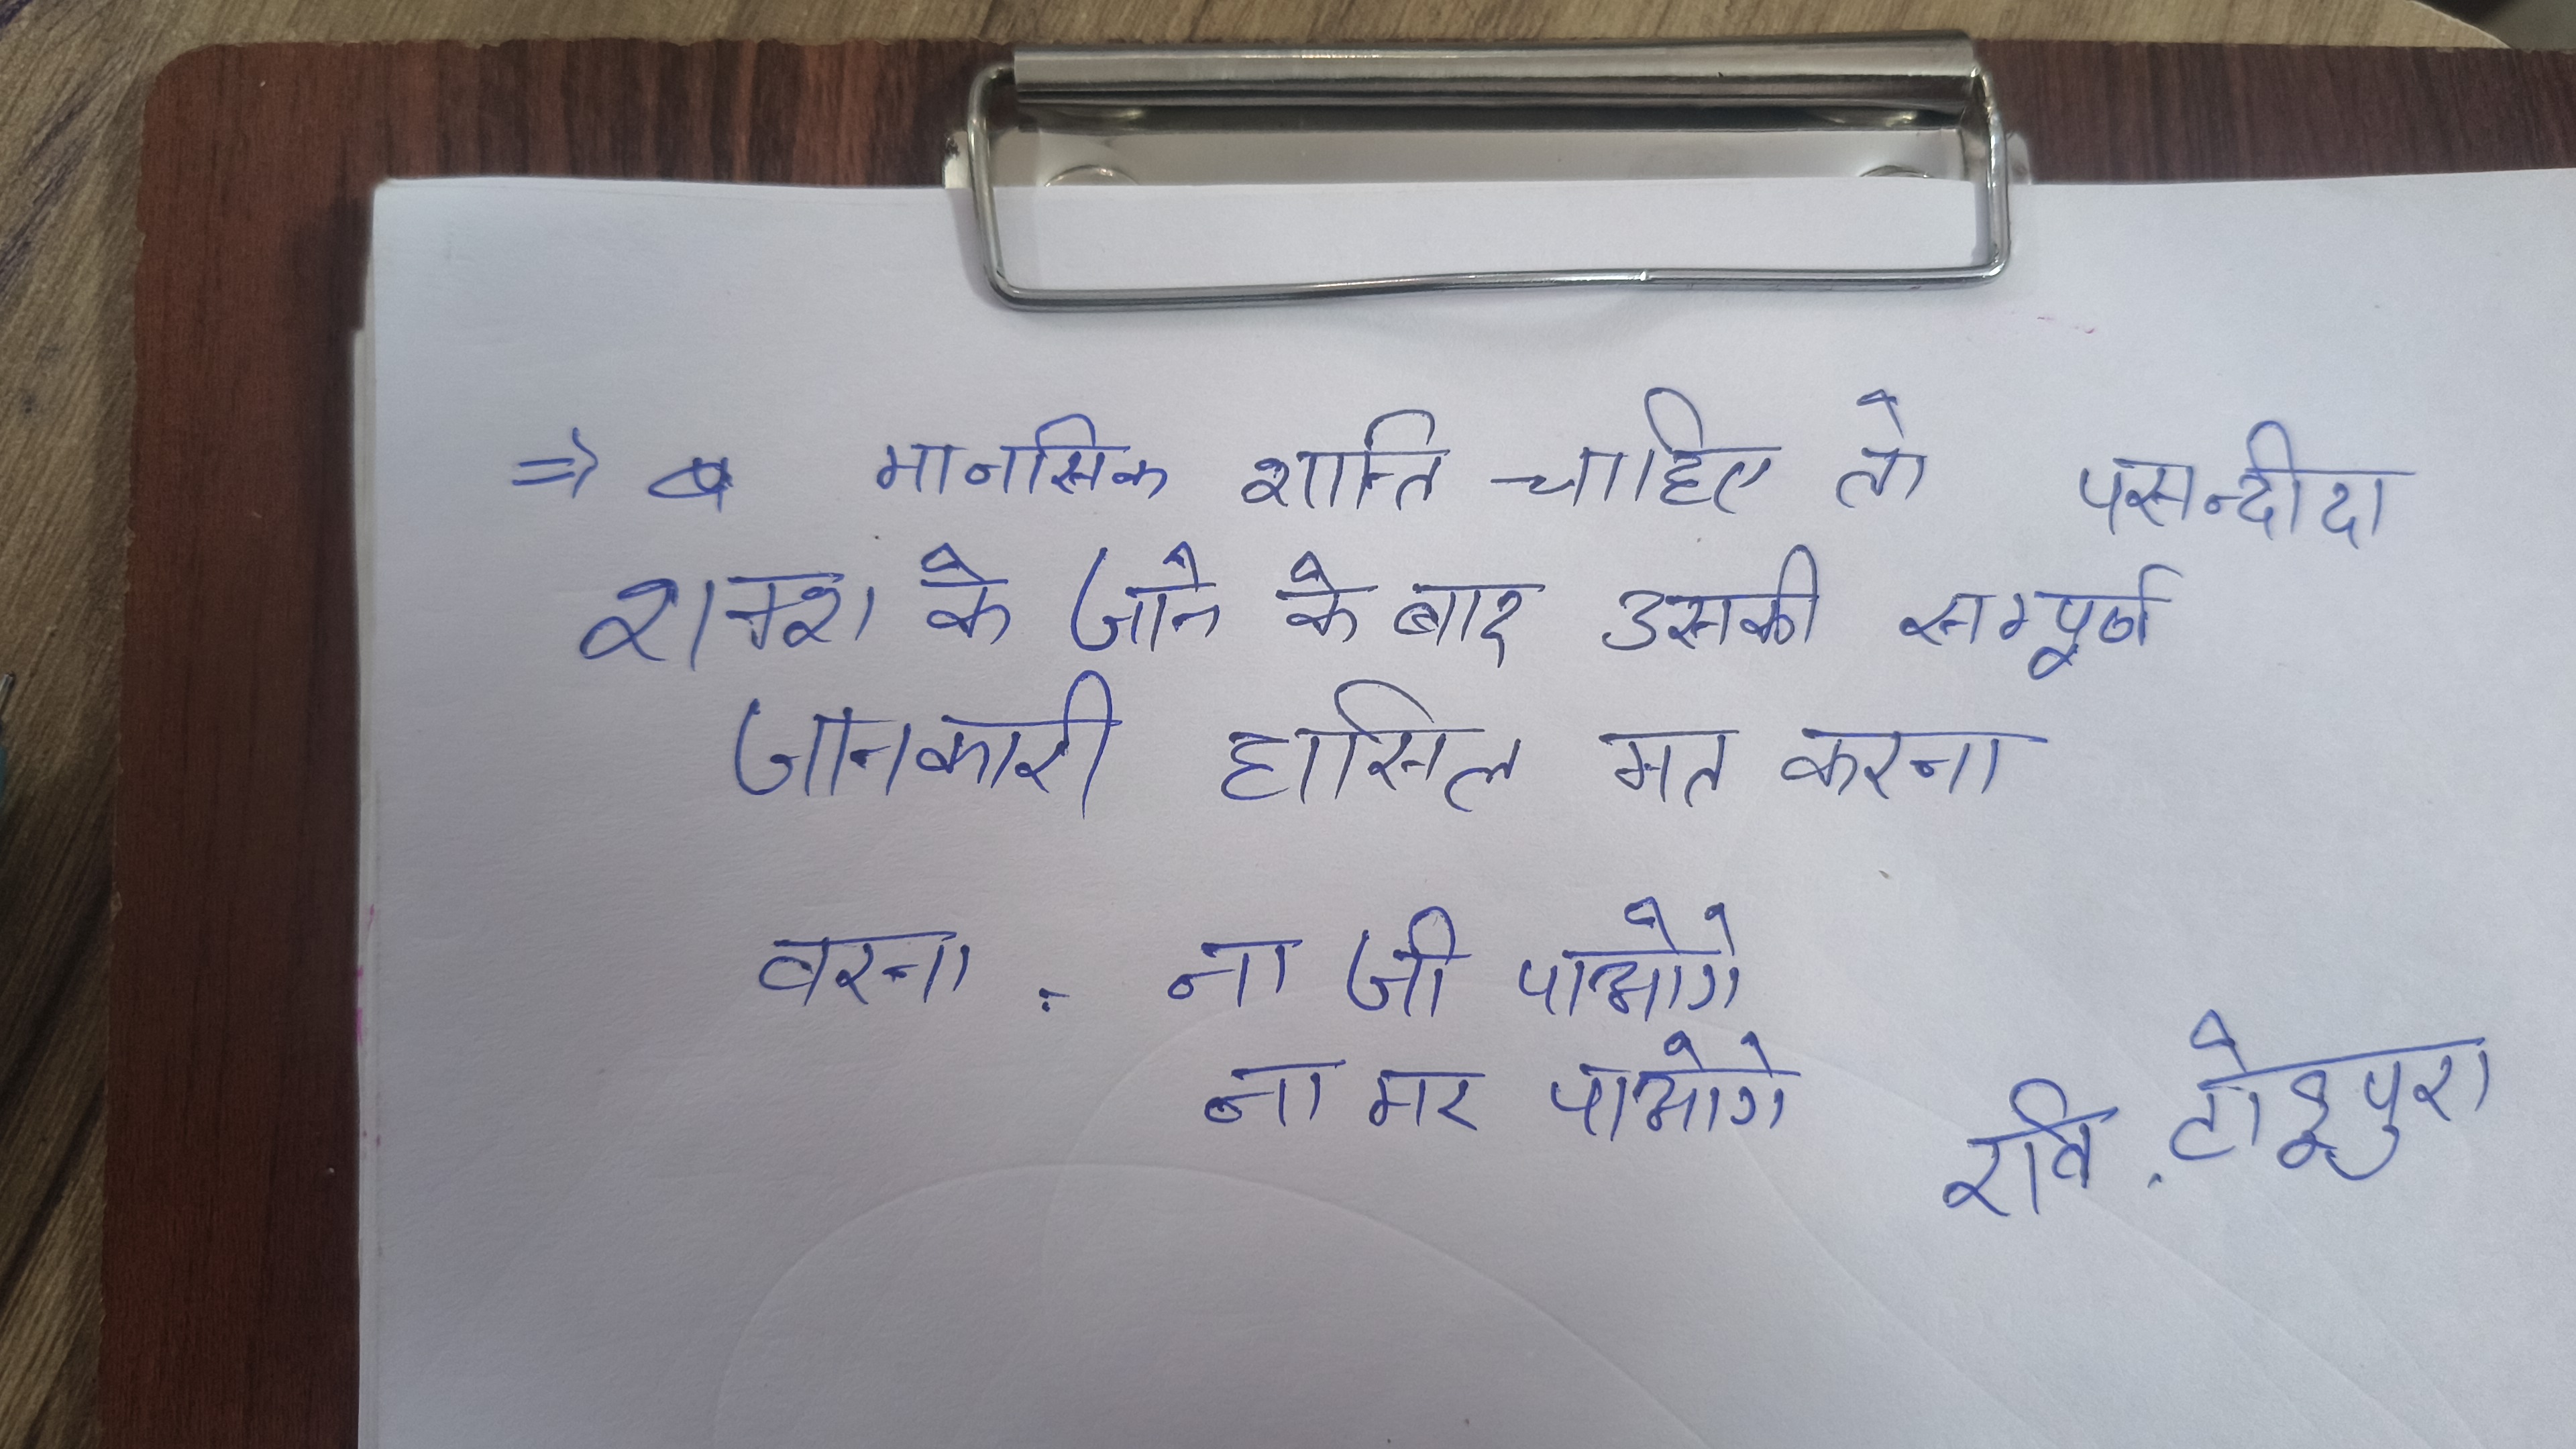 ⇒ मानसिक शान्ति चाहिए तो पसन्दीदा
शक्श के जाने के बाद उसकी सम्पूर्ण
जानकारी हासिल मत करना
वरना : ना जी पाओगे
ना मर पाओगे
रवि . टोडूपुरा